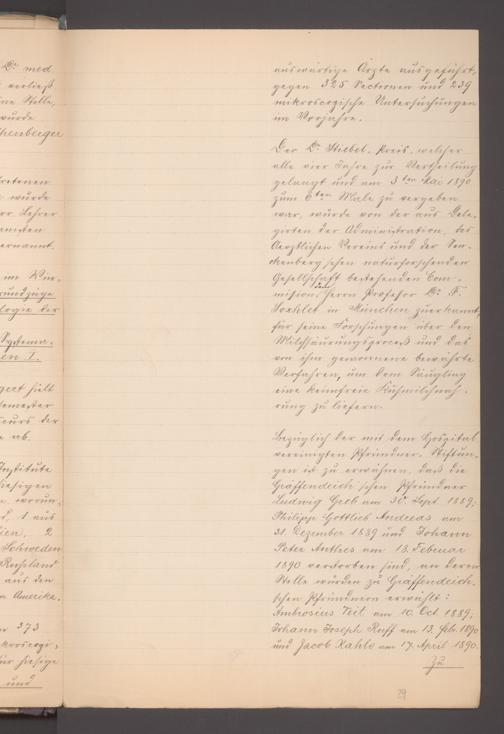 Dr med
verließ
Stelle,
wurde
retenen
wurde
Lehrer
ernannt.
im Win-
Grundzüge
logie der
Systema-
en I.
hält
Semester
ab.
Institute
hiesigen
1 aus
2
Schweden
Russland
aus den
Amerika.
373
für hiesige
und
auswärtige Ärzte ausgeführt,
gegen 325 Sectionen und 239
mikroscopische Untersuchungen
im Vorjahre.
Der Dr Stiebel-Preis, welcher
alle vier Jahre zur Vertheilung
gelangt und am 3ten Mai 1890
zum ten Male zu vergeben
war, wurde von der aus Dele-
girten der Administration, des
Aerztlichen Vereins und der Sen-
ckenberg'schen naturforschenden
Gesellschaft bestehenden Com-
mission dem Herrn Professor Dr F.
Soxhlet in München zuerkannt,
für seine Forschungen über den
Milchsäurungsprocess und das
von ihm gewonnene bewährte
Verfahren, um dem Säugling
eine keimfreie Kuhmilchnah-
rung zu liefern.
Bezüglich der mit dem Hospital
vereinigten Pfründner-Stiftun-
gen ist zu erwähnen, daß die
Gräffendeich'schen Pfründner
Ludwig Greb am 30. Sept 1889,
Philipp Gottlieb Andreas am
31. Dezember 1889 und Johann
Peter Anthes am 18. Februar
1890 verstorben sind, an deren
Stelle wurden zu Gräffendeich-
schen Pfründnern erwählt:
Ambrosius Veit am 10. Oct. 1889,
Johann Joseph Ruff am 13. Feb. 1890
und Jacob Kahlo am 17. April 1890.
Zu
29